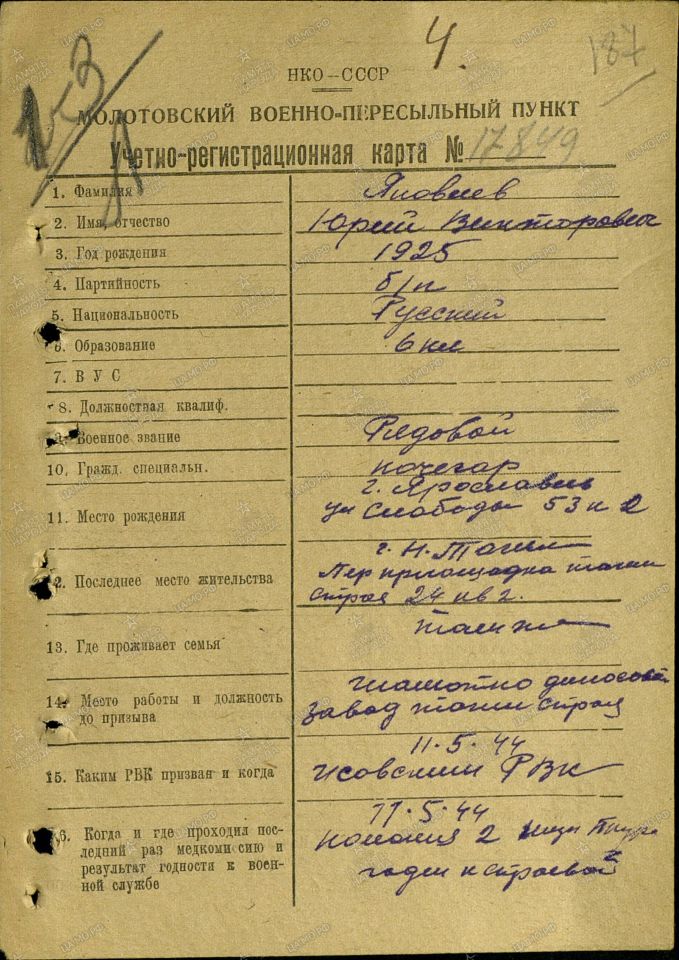 4.
187
НКО—СССР
МОЛОТОВСКИЙ ВОЕННО-ПЕРЕСЫЛЬНЫЙ ПУНКТ
Учетно-регистрационная карта № 17849
1. Фамилия Яковлев
2. Имя, отчество Юрий Викторович
3. Год рождения 1925
4. Партийность б/п
5. Национальность Русский
6. Образование 6 кл
7. В У С
8. Должностная квалиф.
9. Военное звание Рядовой
10. Гражд. специальн. кочегар
11. Место рождения г. Ярославль
ул Слободы 53 к 2
12. Последнее место жительства г. Н. Тагил
площадка тагил
строя 24 кв 2.
13. Где проживает семья там же
14. Место работы и должность
до призыва
шамотно диносовый
завод тагил строя
15. Каким РВК призвая и когда 11.5.44
Исовским РВК
16. Когда и где проходил пос-
ледний раз медкомиссию и
результат годности к воен-
ной службе
11.5.44
колония 2
годен к строевой